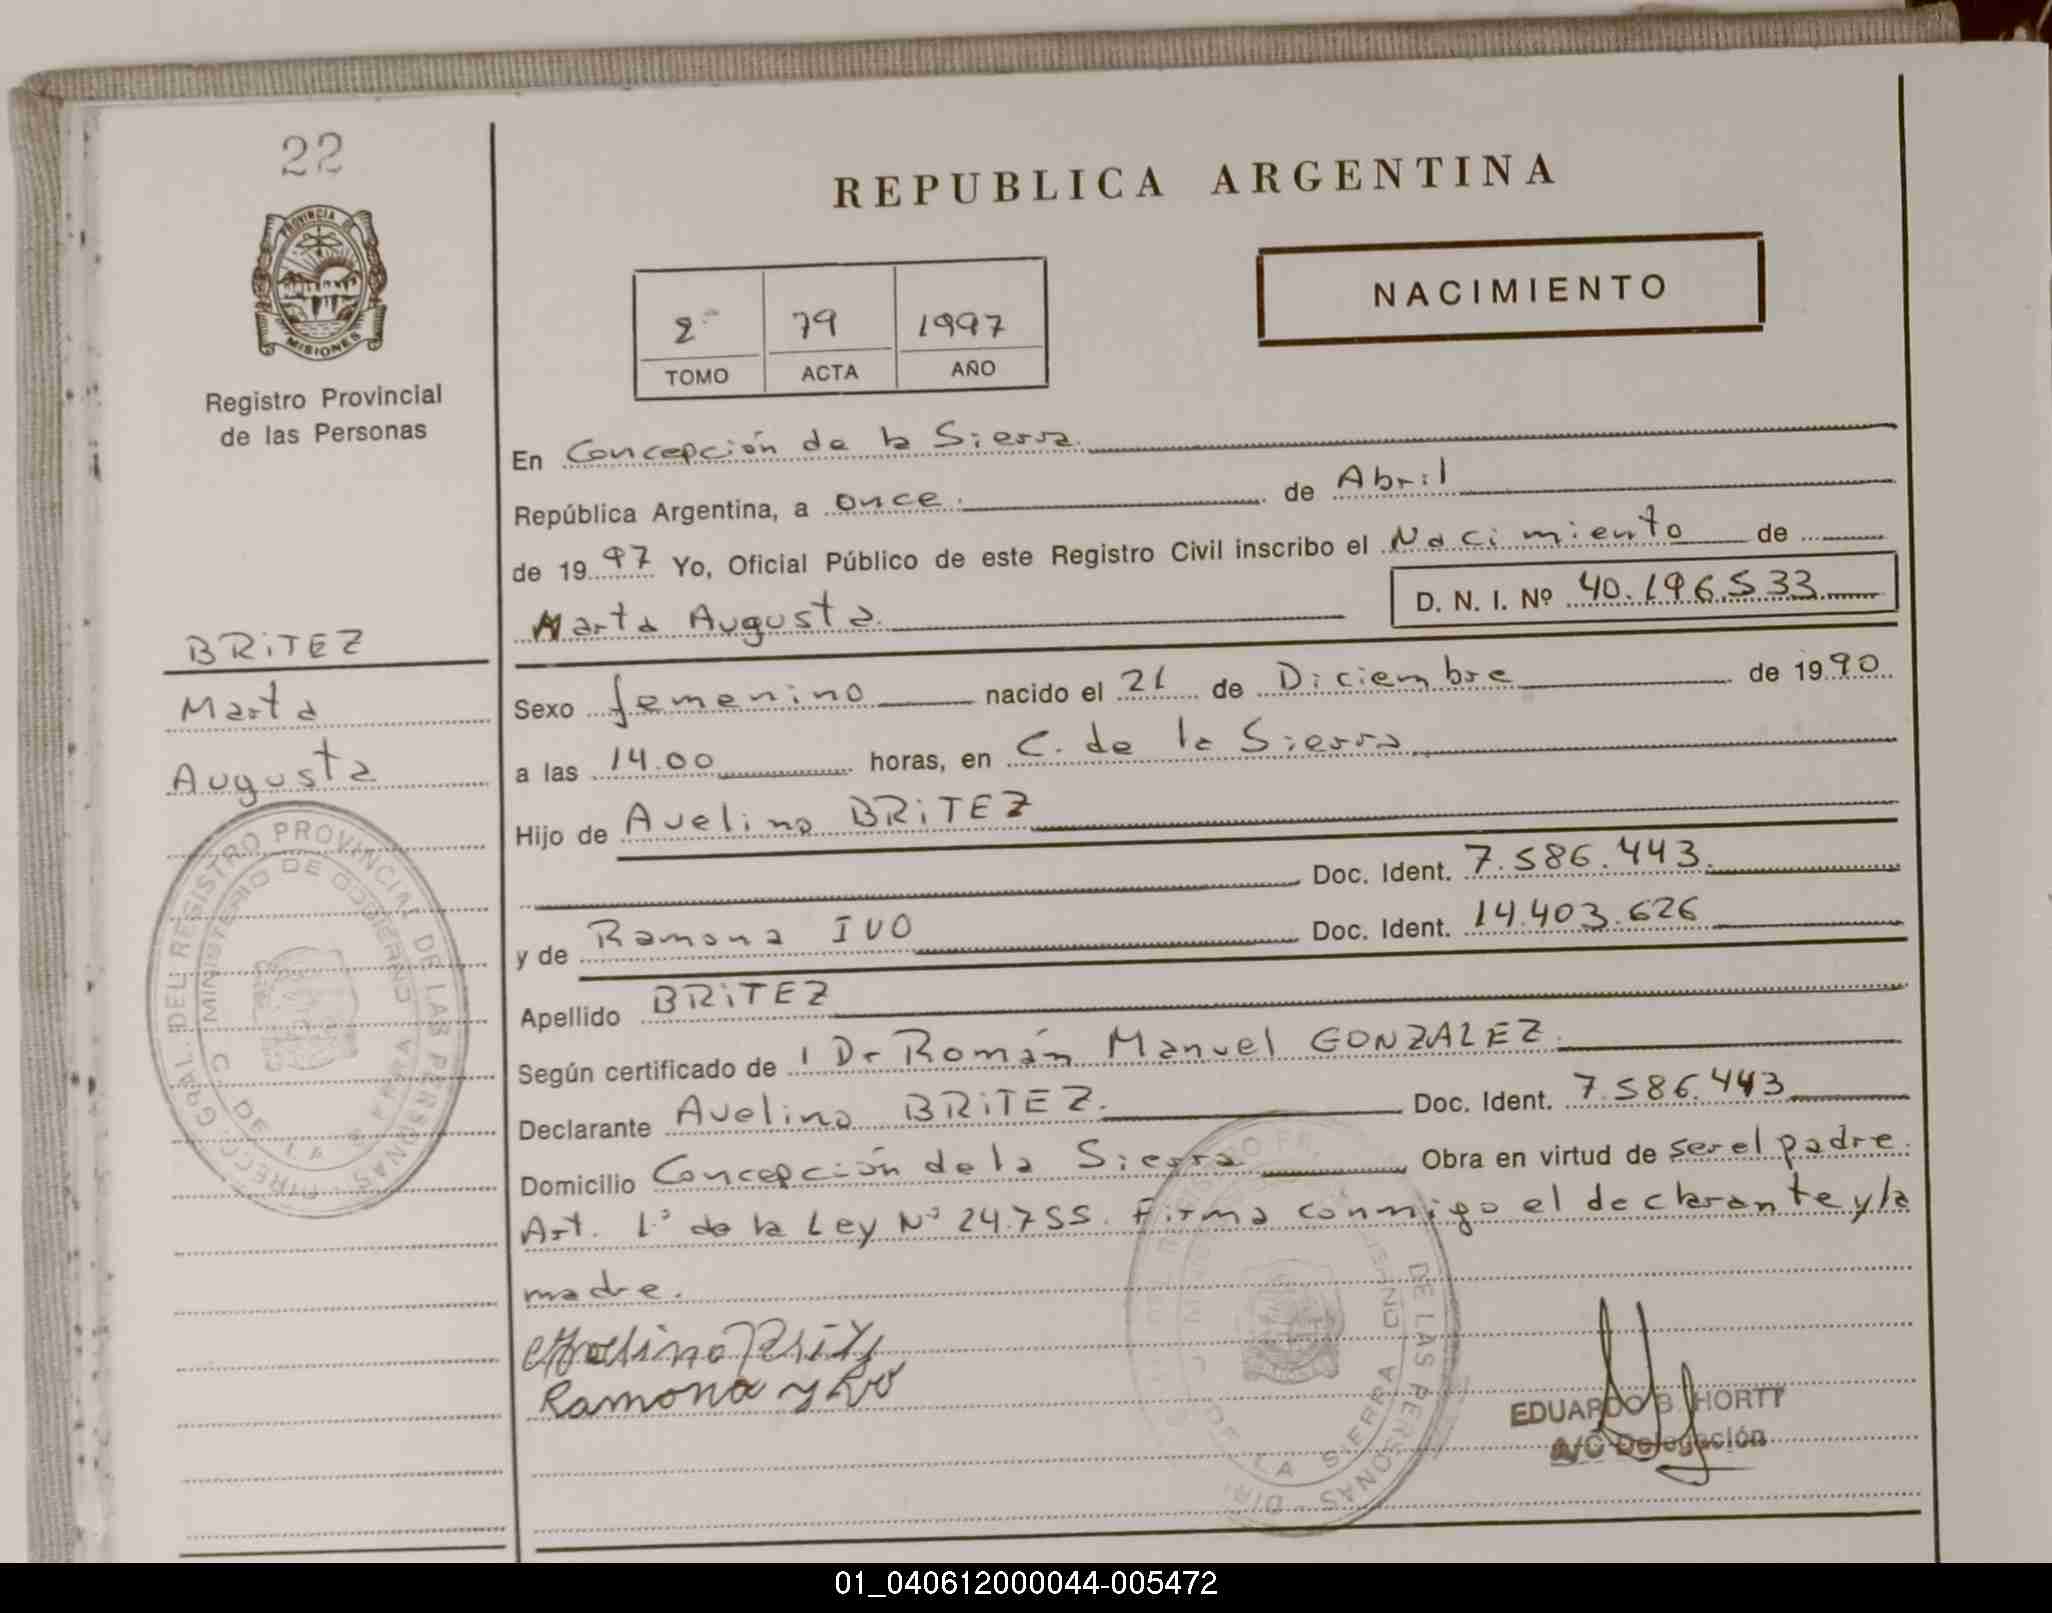 22
PROVINCIA DE
MISIONES
Registro Provincial
de las Personas
BRiTEZ
Marta
Augusta
REPUBLICA ARGENTINA
NACIMIENTO
2º 79 1997
TOMO ACTA AÑO
En Concepción de la Sierra.
República Argentina, a once. de Abril
de 1997 Yo, Oficial Público de este Registro Civil inscribo el Nacimiento de
Marta Augusta. D. N. I. Nº 40.196.533
Sexo femenino nacido el 21 de Diciembre de 1990
a las 14.00 horas, en C. de la Sierra
Hijo de Avelino BRiTEZ
Doc. Ident. 7.586.443.
y de Ramona IVO Doc. Ident. 14.403.626
Apellido BRiTEZ
Según certificado de Dr Román Manuel GONZALEZ.
Declarante Avelino BRiTEZ. Doc. Ident. 7.586.443
Domicilio Concepción de la Sierra Obra en virtud de ser el padre.
Art. 1º de la Ley Nº 24.755. Firma conmigo el declarante y la
madre.
Avelino Brites
Ramona yvo
EDUARDO B. HORTT
A/C Delegación
DEL REGISTRO PROVINCIAL DE LAS PERSONAS
MINISTERIO DE GOBIERNO
DE LAS PERSONAS
DE LA SIERRA
01_040612000044-005472